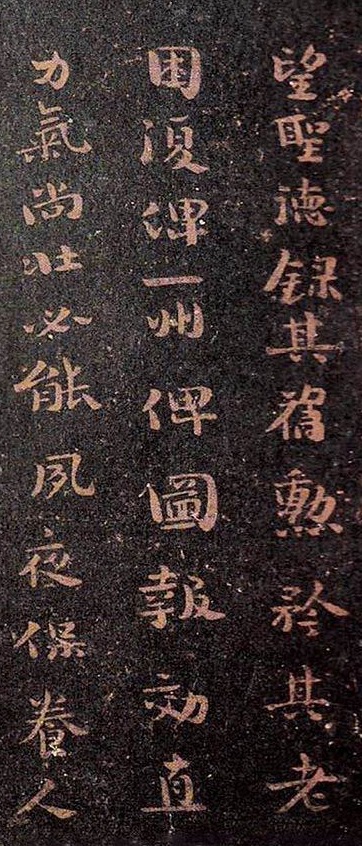 望聖德錄其舊勳矜其老
困復俾一州俾圖報効直
力氣尚壯必能夙夜保養人